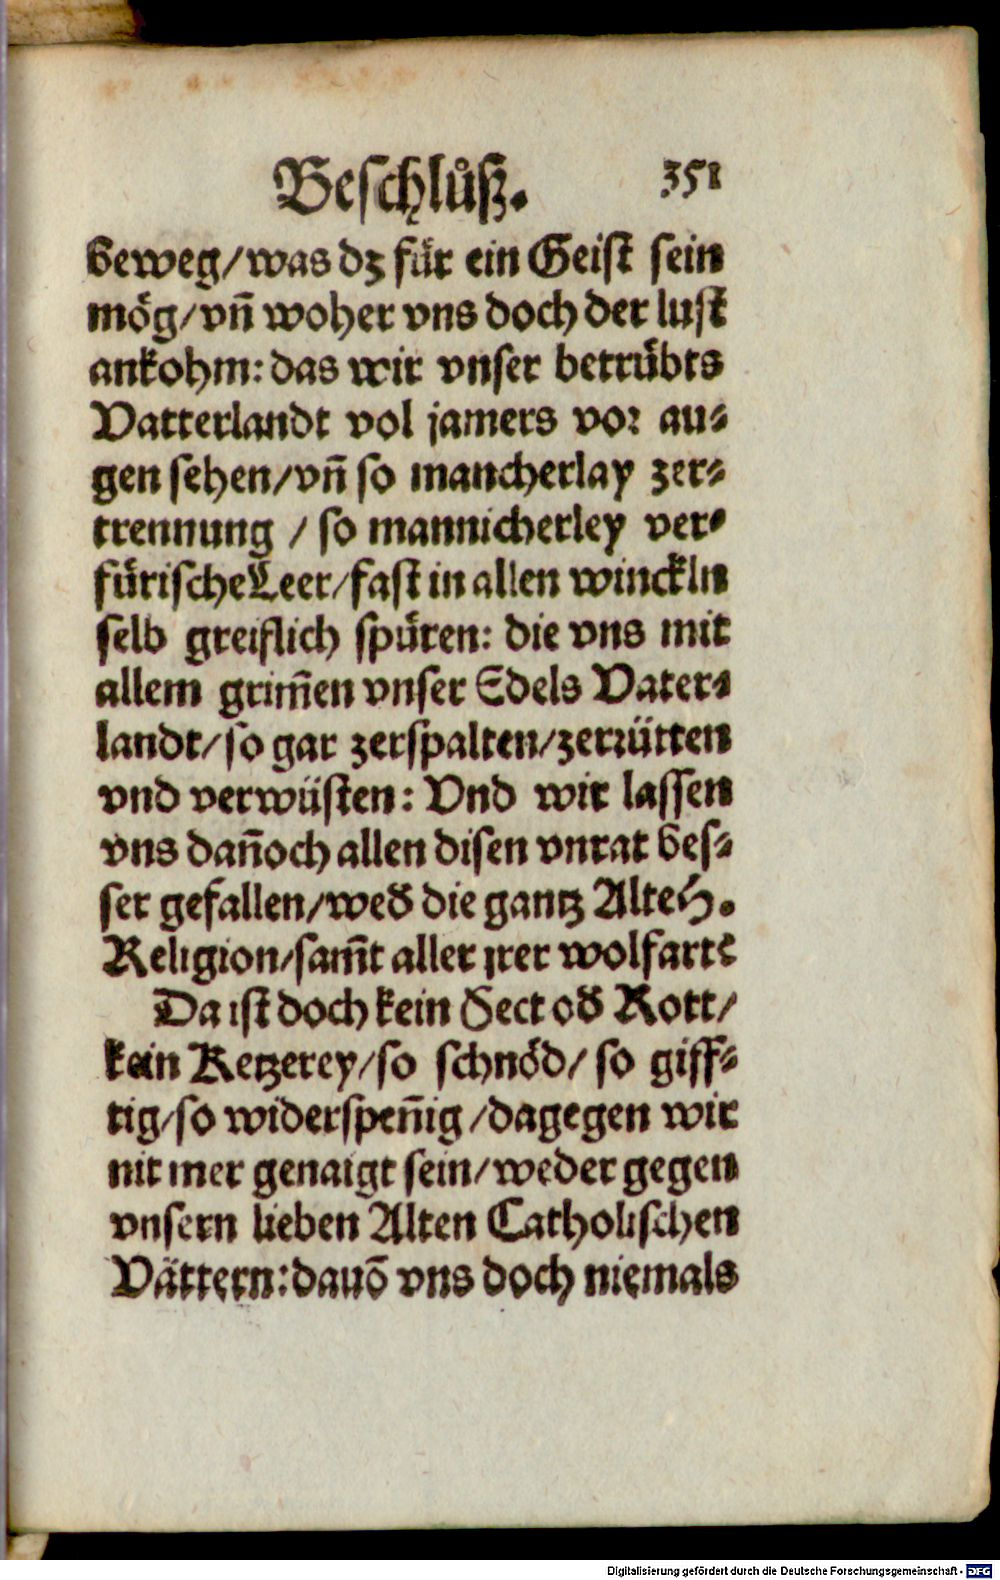 Beschlůß. 351
beweg/was dz für ein Geist sein
mög/vñ woher vns doch der lust
ankohm: das wir vnser betrübts
Vatterlandt vol jamers vor au⸗
gen sehen/vñ so mancherlay zer⸗
trennung / so mannicherley ver⸗
fürische Leer/fast in allen winckln
selb greiflich spüren: die vns mit
allem grim̃en vnser Edels Vater⸗
landt/so gar zerspalten/zerrütten
vnd verwüsten: Vnd wir lassen
vns dañoch allen disen vnrat bes⸗
ser gefallen/wed̕ die gantz Alte H.
Religion/sam̃t aller jrer wolfart:
Da ist doch kein Sect od̕ Rott/
kein Ketzerey/so schnöd/ so giff⸗
tig/so widerspeñig/dagegen wir
nit mer genaigt sein/weder gegen
vnsern lieben Alten Catholischen
Vättern: dauõ vns doch niemals
Digitalisierung gefördert durch die Deutsche Forschungsgemeinschaft - DFG